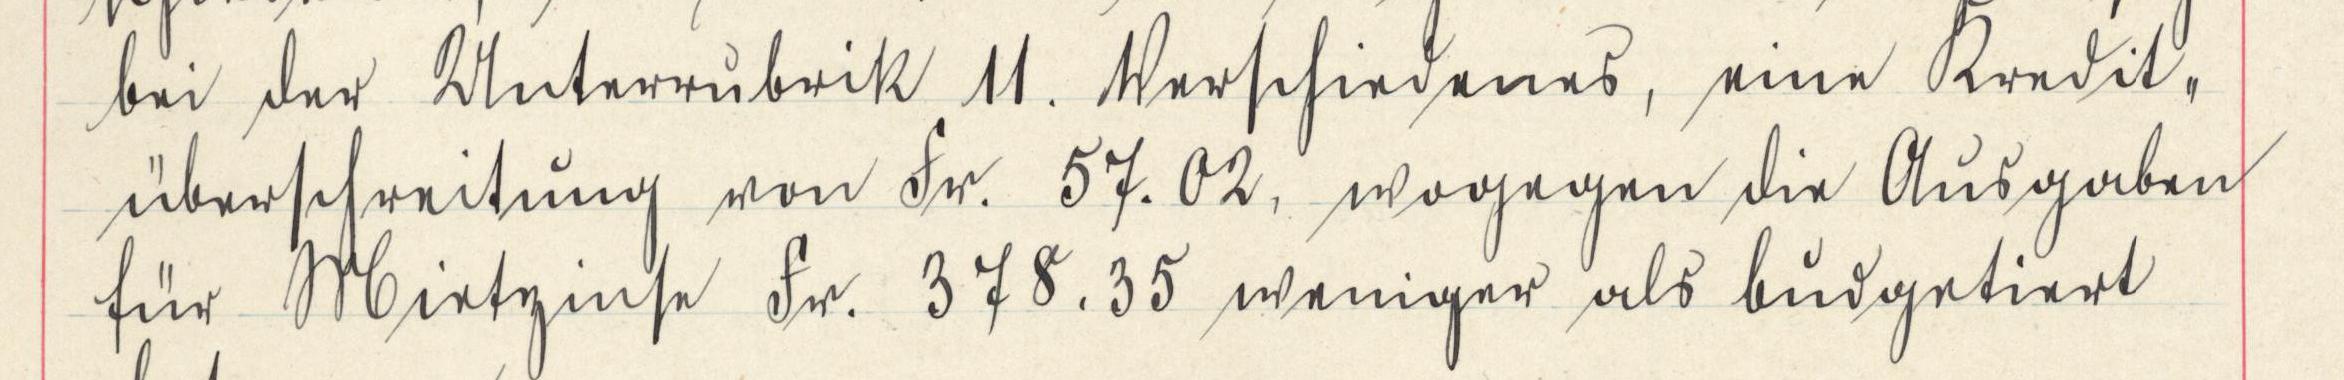 bei der Unterrubrik 11. Verschiedenes, eine Kredit„
überschreitung von Fr. 57.02, wogegen die Ausgaben
für Mietzinse Fr. 378.35 weniger als budgetiert